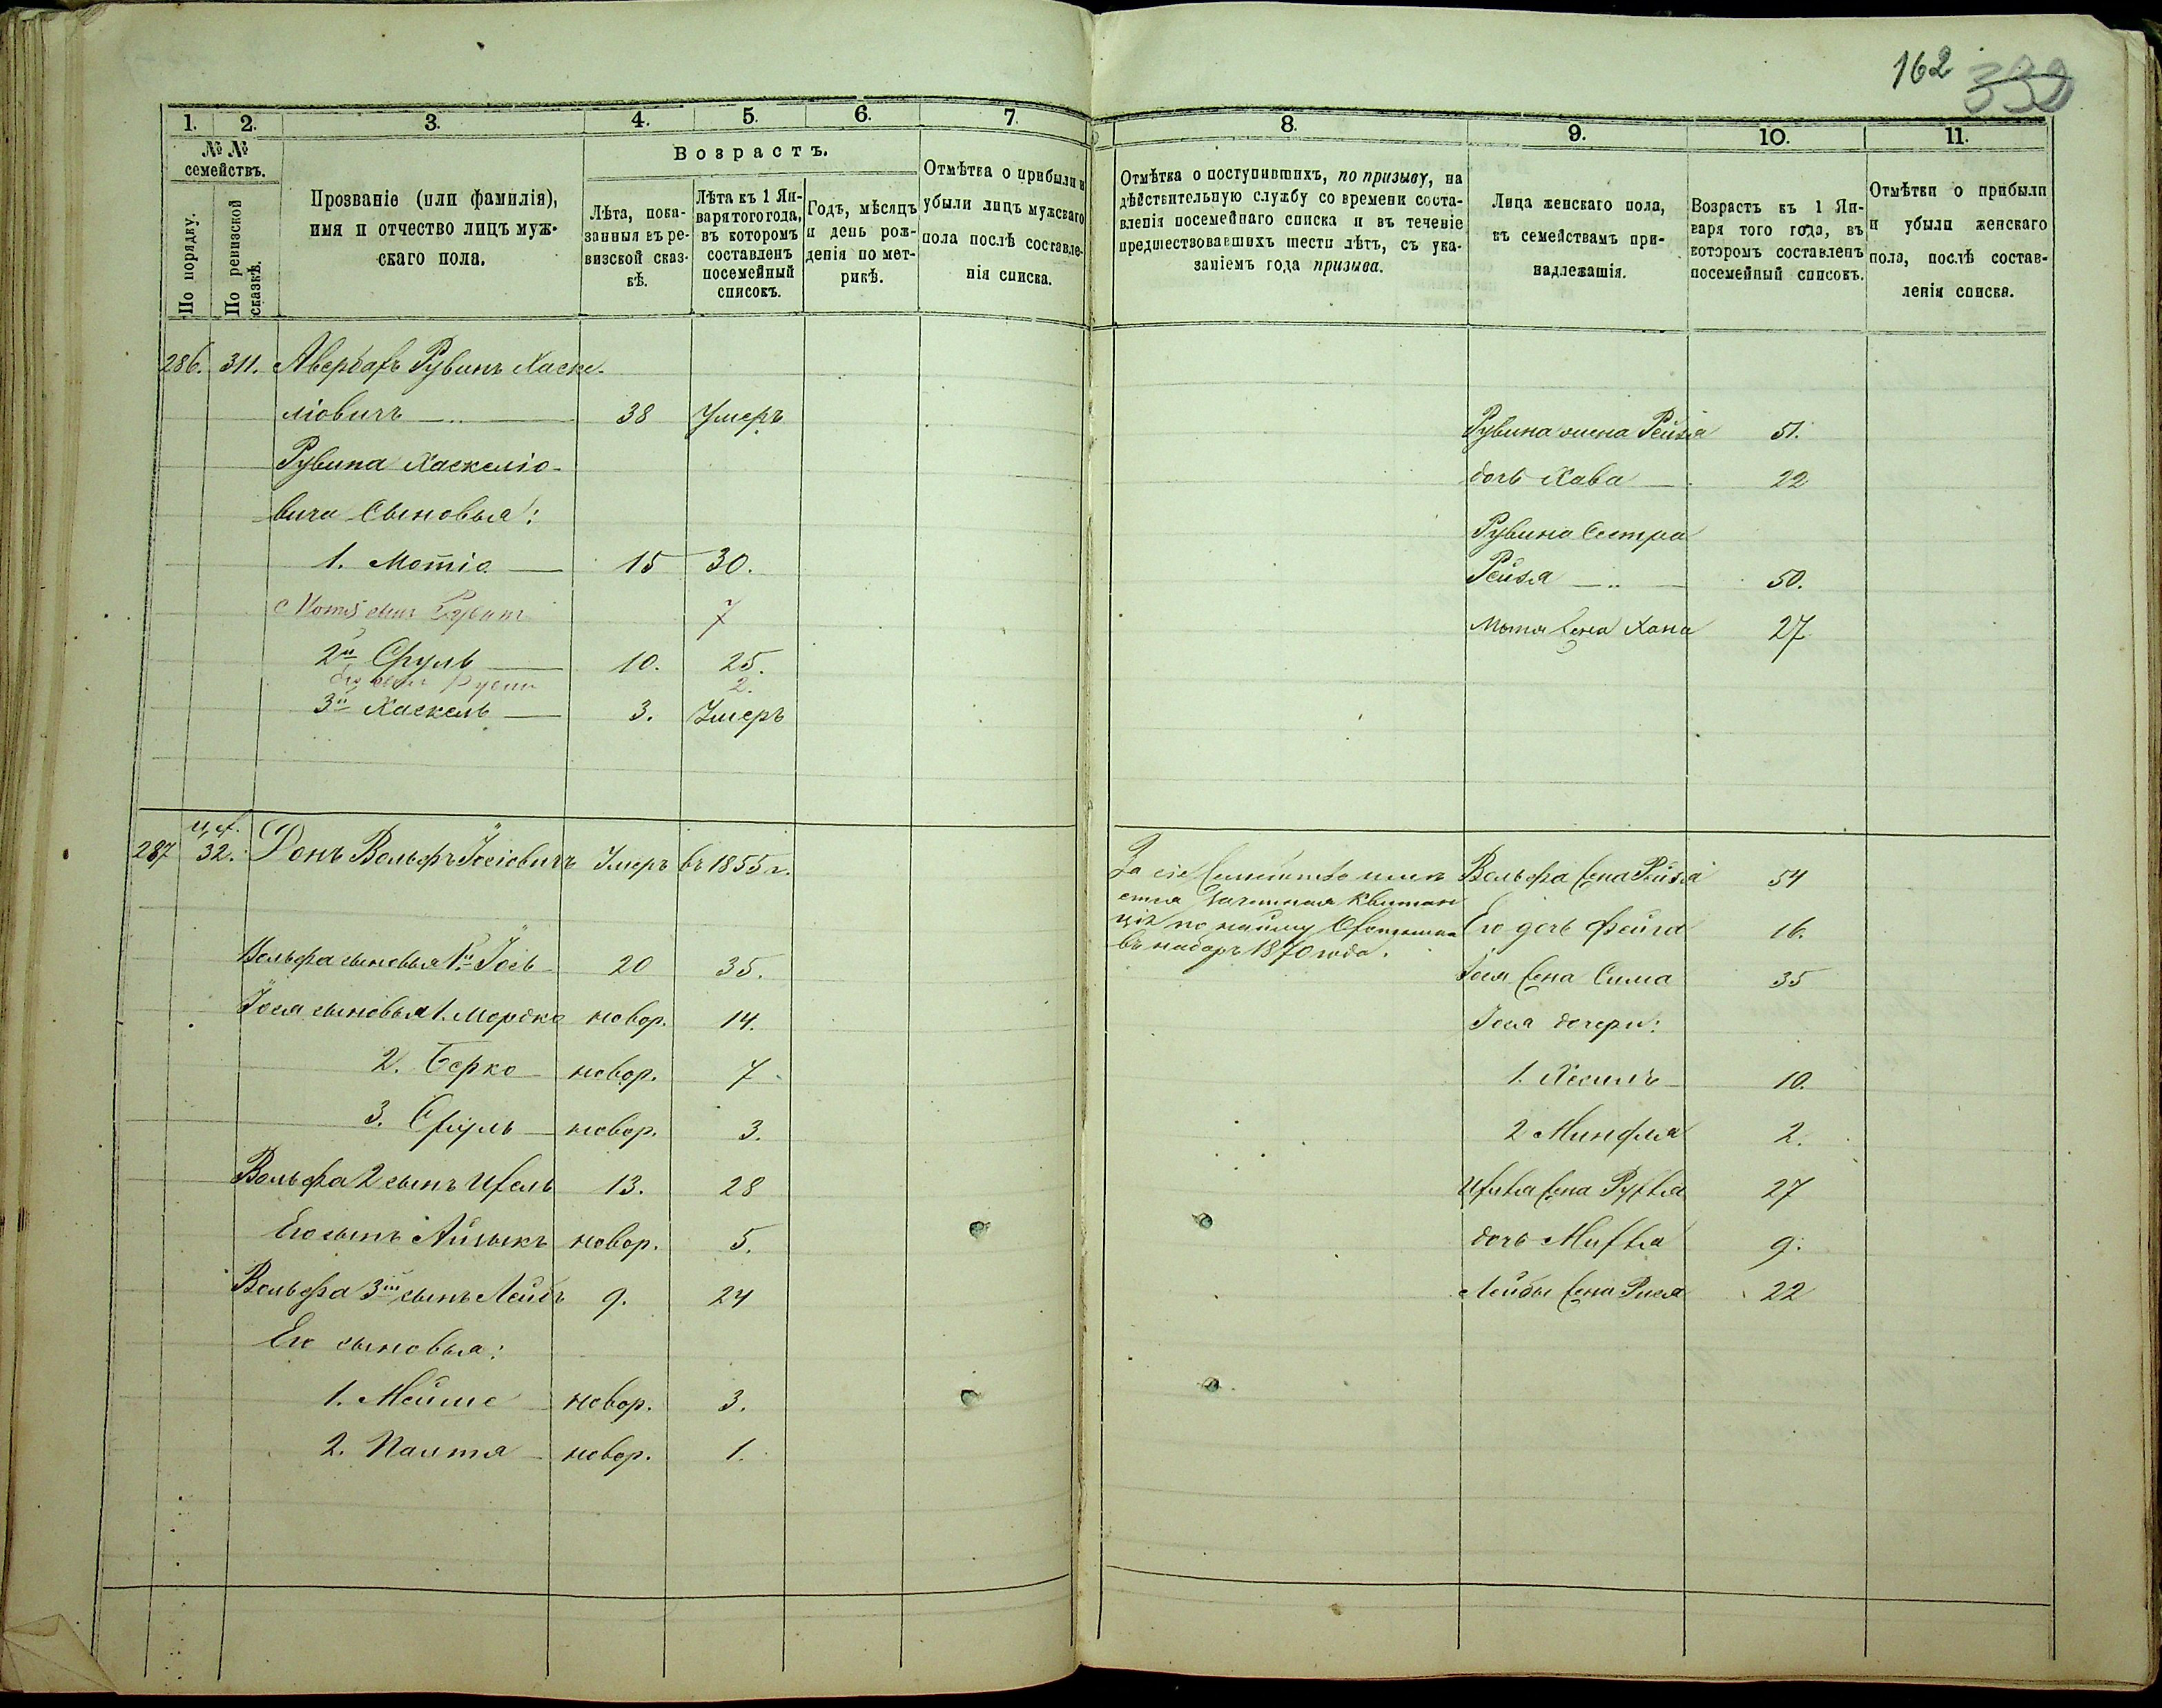 162 339
1. 2. 3. 4. 5. 6. 7.
№ № семействъ.
По порядку.
По ревизской сказкѣ.
Прозваніе (или фамилія),
имя и отчество лицъ муж-
скаго пола.
Возрастъ.
Лѣта, пока-
занныя въ ре-
визской сказ-
кѣ.
Лѣта къ 1 Ян-
варя того года,
въ которомъ
составленъ
посемейный
списокъ.
Годъ, мѣсяцъ
и день рож-
денія по мет-
рикѣ.
Отмѣтка о прибыли и
убыли лицъ мужскаго
пола послѣ составле-
нія списка.
286. 311. Авербахъ Рувинъ Хаске-
ліовичъ 38 Умеръ
Рувина Хаскеліо-
вича Сыновья:
1. Мотіо 15 30.
Мотя сынъ Рувинъ 7
2й Сруль 10. 25.
Его сынъ Рувинъ 2.
3й Хаскель 3. Умеръ
287 32. Донъ Вольфъ Іосіовичъ Умеръ въ 1855 г.
Вольфа сыновья 1й Іось 20 35.
Іося сыновья 1. Мордко новор. 14.
2. Берко новор. 7
3. Сруль новор. 3.
Вольфа 2 сынъ Ицель 13. 28
Его сынъ Айзыкъ новор. 5.
Вольфа 3й сынъ Лейбъ 9. 24
Его сыновья:
1. Мейше новор. 3.
2. новор. 1.
8. 9. 10. 11.
Отмѣтка о поступившихъ, по призыву, на
дѣйствительную службу со времени соста-
вленія посемейнаго списка и въ теченіе
предшествовавшихъ шести лѣтъ, съ ука-
заніемъ года призыва.
Лица женскаго пола,
къ семействамъ при-
надлежащія.
Возрастъ къ 1 Ян-
варя того года, въ
которомъ составленъ
посемейный списокъ.
Отмѣтки о прибыли
и убыли женскаго
пола, послѣ состав-
ленія списка.
Рувина жена Рейзя 51.
дочь Хава 22
Рувина Сестра
Рейзя 50.
Мотя жена Хана 27
За сіе Семейство имѣ-
ется Зачетная Квитан-
ція по найму Охотника
въ наборъ 1870 года.
Вольфа жена Рейзя 54
Его дочь Фейга 16.
Іося жена Сима 35
Іося дочери:
1. 10.
2 Миндля 2.
жена Рухля 27
дочь 9.
Лейбы жена Рися 22